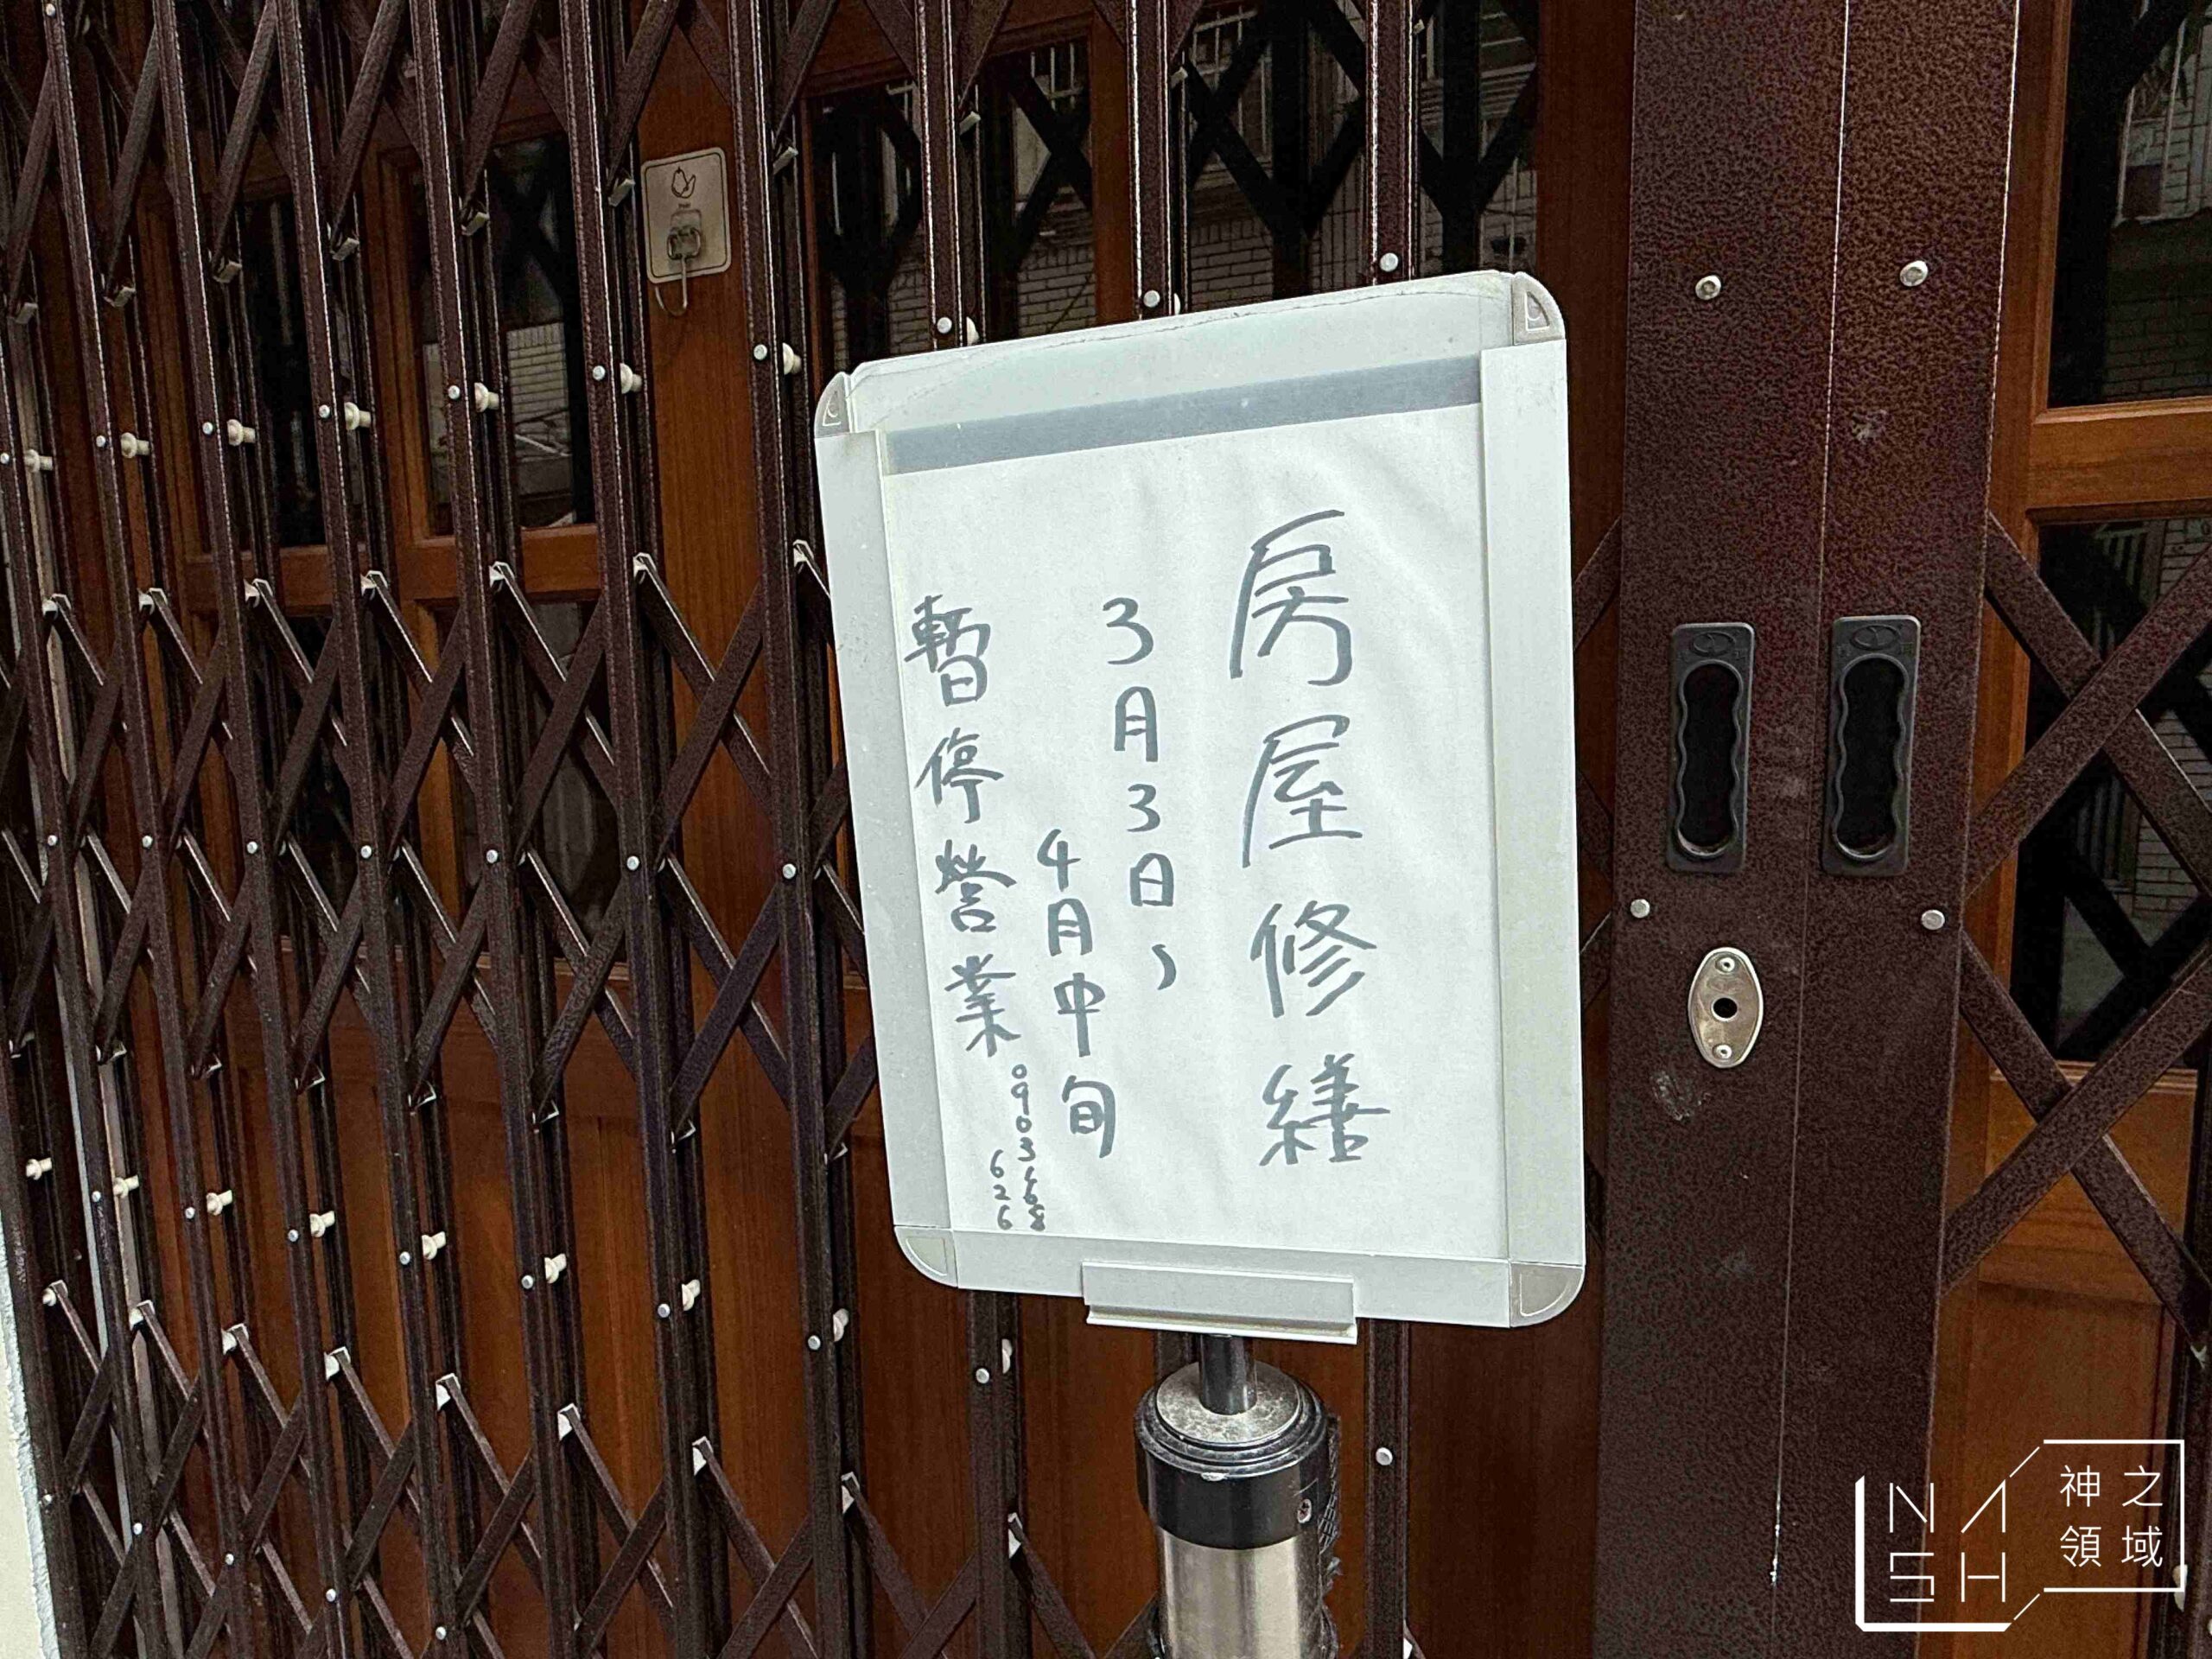 房屋修繕
3月3日~
4月中旬
暫停營業
626
NASH
神之領域